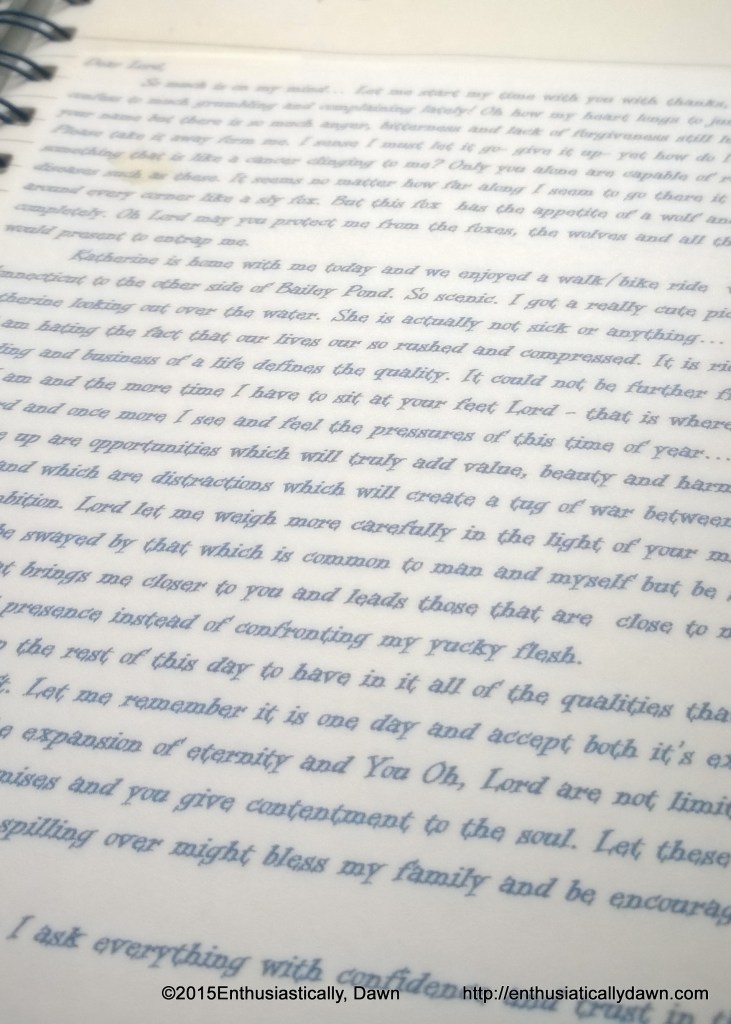 Dear Lord,
So much is on my mind... Let me start my time with you with thanks.
confess to much grumbling and complaining lately! Oh how my heart longs to
your name but there is so much anger, bitterness and lack of forgiveness still
Please take it away form me. I sense I must let it go- give it up- yet how do I
something that is like a cancer clinging to me? Only you alone are capable of
diseases such as these. It seems no matter how far along I seem to go there it
around every corner like a sly fox. But this fox has the appetite of a wolf and
completely. Oh Lord may you protect me from the foxes, the wolves and all th
would present to entrap me.
Katherine is home with me today and we enjoyed a walk/bike ride
nnecticut to the other side of Bailey Pond. So scenic. I got a really cute pic
therine looking out over the water. She is actually not sick or anything...
am hating the fact that our lives our so rushed and compressed. It is ri
ling and business of a life defines the quality. It could not be further f
am and the more time I have to sit at your feet Lord - that is where
rd and once more I see and feel the pressures of this time of year...
e up are opportunities which will truly add value, beauty and harm
and which are distractions which will create a tug of war between
bition. Lord let me weigh more carefully in the light of your m
be swayed by that which is common to man and myself but be
at brings me closer to you and leads those that are close to m
presence instead of confronting my yucky flesh.
the rest of this day to have in it all of the qualities tha
t. Let me remember it is one day and accept both it's ex
e expansion of eternity and You Oh, Lord are not limit
mises and you give contentment to the soul. Let these
spilling over might bless my family and be encourag
I ask everything with confidence and trust in t
©2015Enthusiastically, Dawn http://enthusiaticallydawn.com